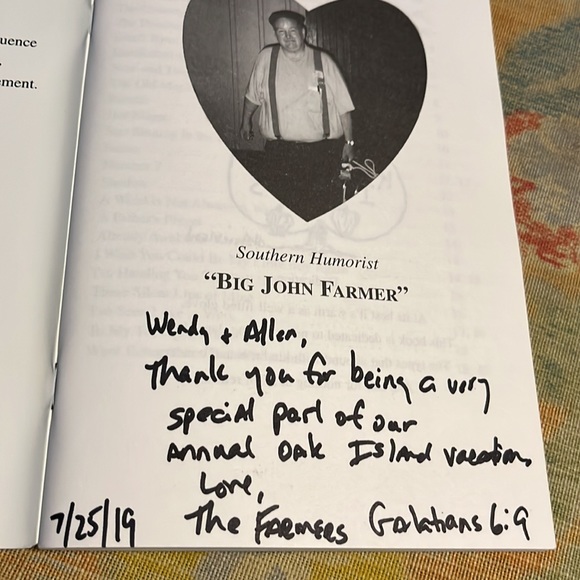 uence
ement.
Southern Humorist
"BIG JOHN FARMER"
Wendy + Allen,
Thank you for being a very
special part of our
Annual Oak Island vacation.
Love,
7/25/19 The FARMERS Galatians 6:9